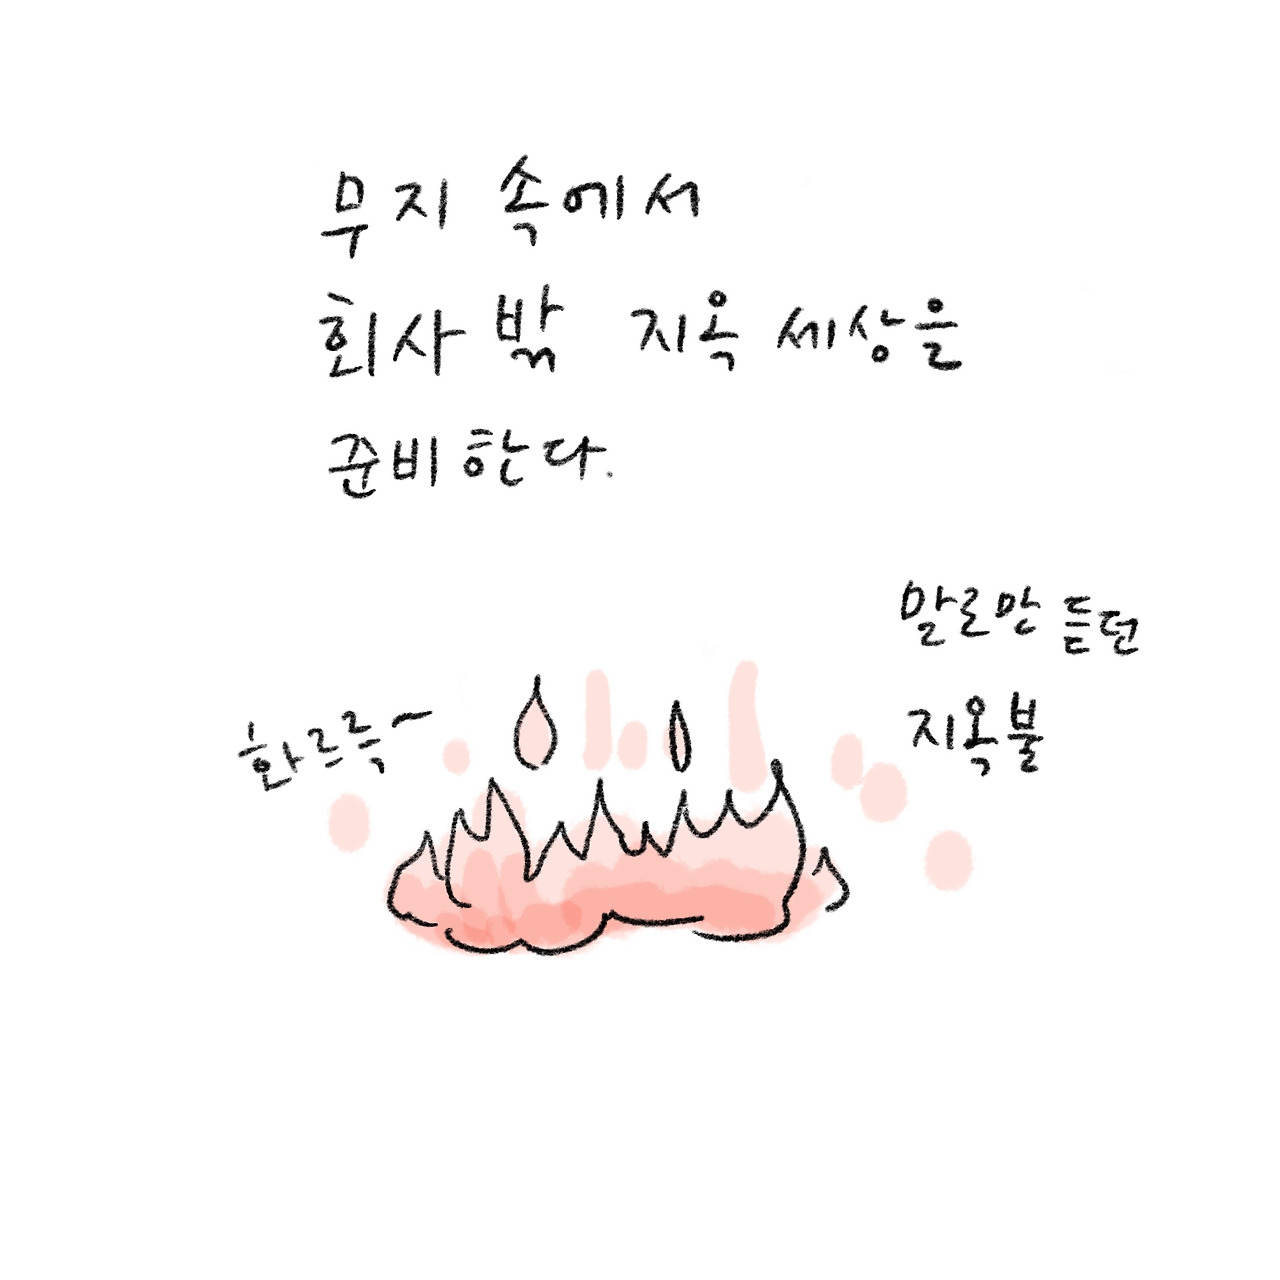 무지 속에서
회사 밖 지옥 세상을
준비한다.
말로만 듣던
지옥불
화르륵~